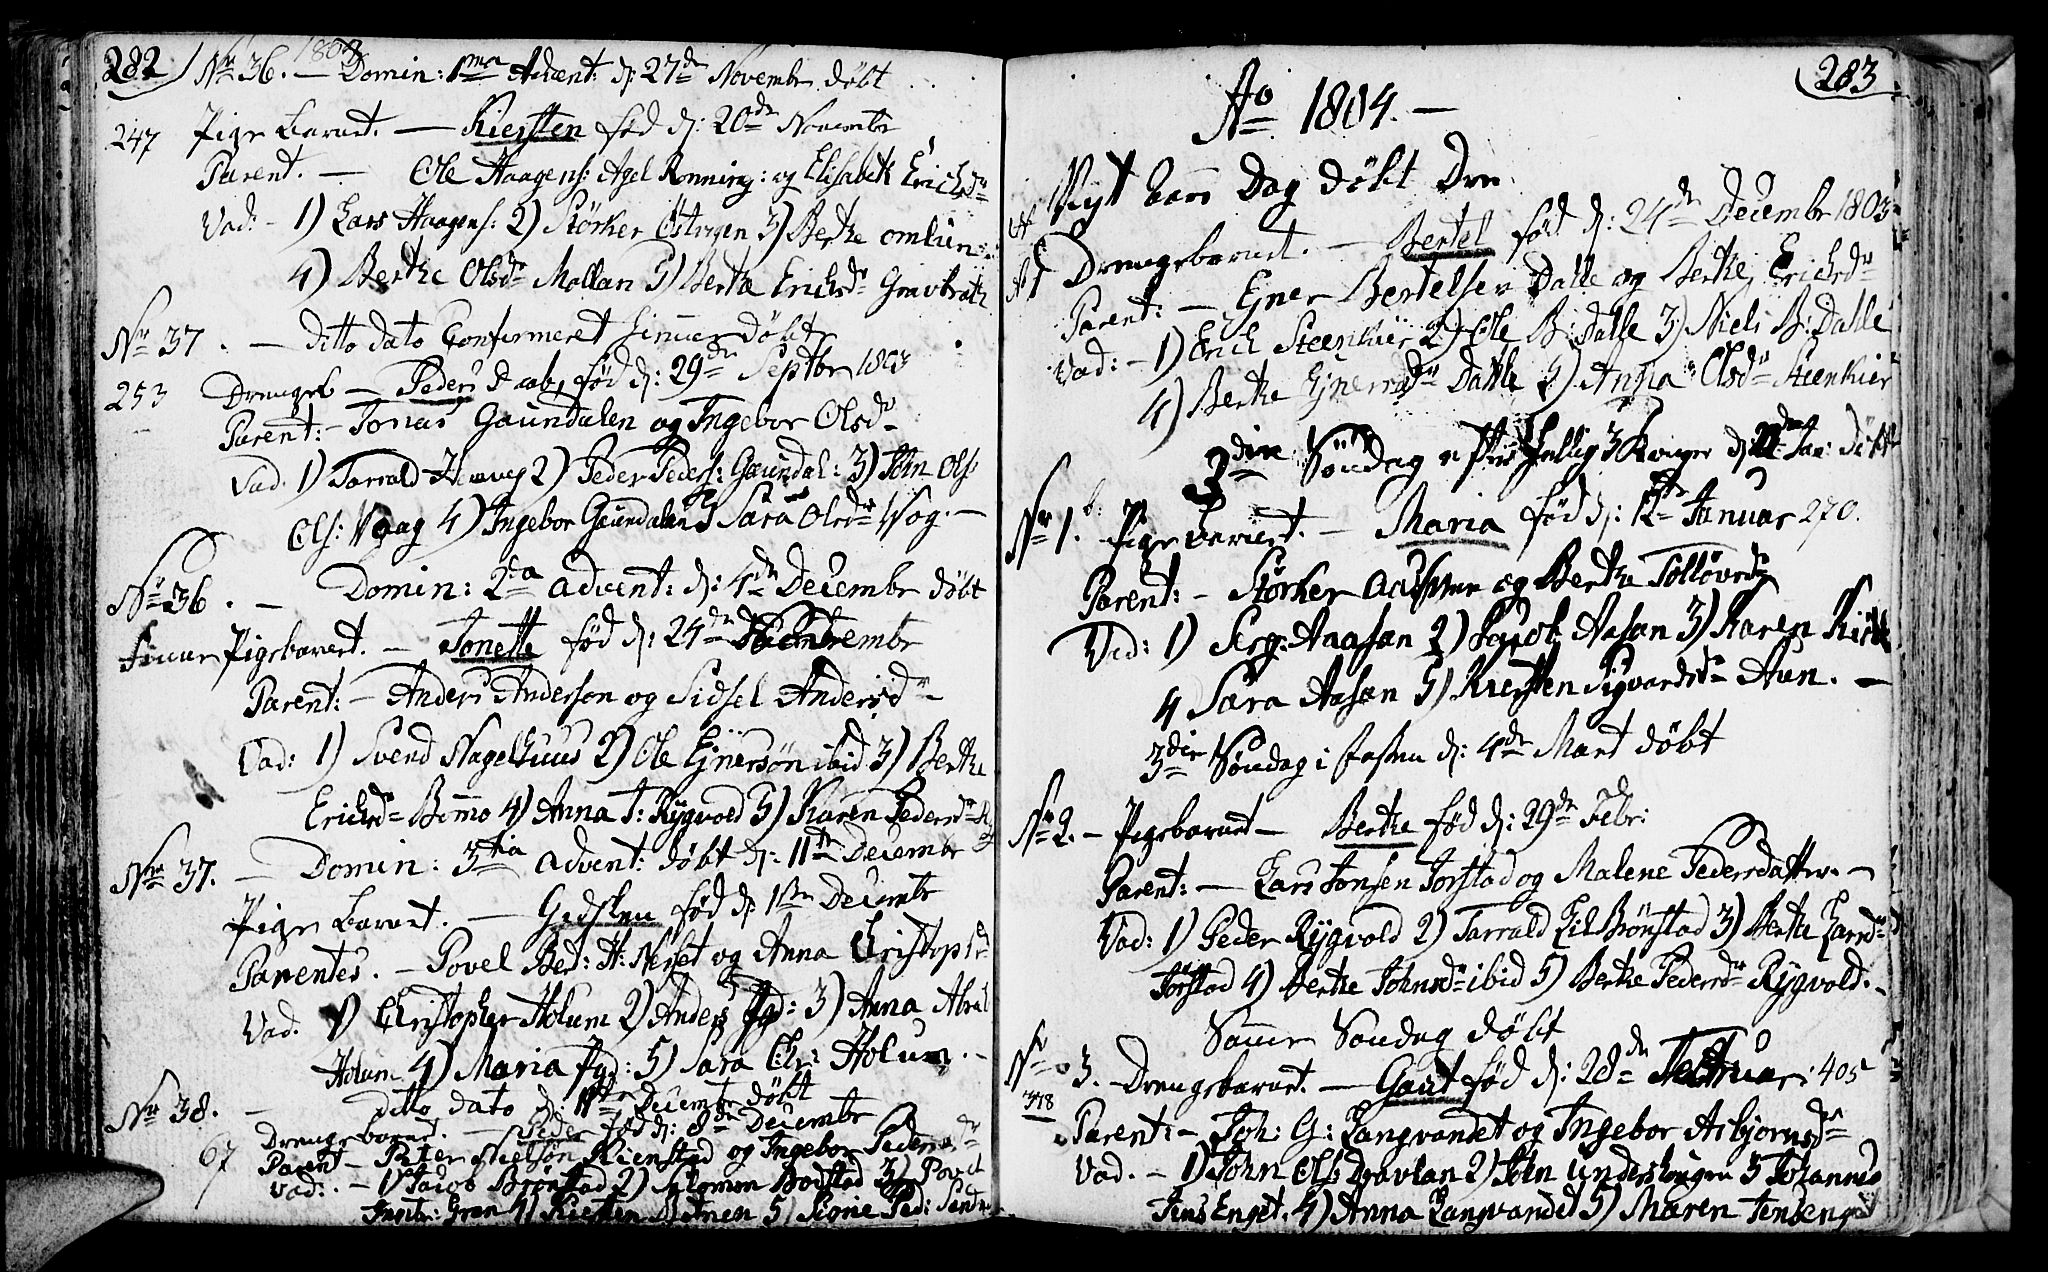 282 1803
Nr 36. — Domin: 1ma Advent: d: 27de Novembr døbt
247 Pige barnet. — Kiersten fød d: 20de Novembr
Parent. — Ole Haagens: Agel Rønning: og Elisabeth Erichsdr
Vad: – 1) Lars Haagens: 2) Størker Østvigen 3) Berthe omlun:
4) Berthe Olsdr Mollan 5) Berthe Erichsdr Gravbræk
Nr 37. — Ditto dato Confirmeret hiemmedøbt
253 Drengeb — Peder Daab, fød d: 29de Septbr 1803
Parent: – Jonas Gaundalen og Ingebor Olsdr
Vad. 1) Tarrald 2) Peder Peders: Gaundal: 3) John Ols:
Ols: Waag 4) Ingebor Gaundalen 5 Sara Olsdr Wog. —
Nr 36. — Domin: 2da advent: d: 4de Decembr døbt
Pigebarnet. – Tonette fød d: 24de Novembr
Parent: – Anders Anderson og Sidsel Andersdr
Vad: 1) Svend Nagelhuus 2) Ole Ejnersøn ibid 3) Berthe
Erichsdr Bimo 4) Anna T: Rygvold 5) Karen Pedersdr
Nr 37. — Domin: 3tia advent: døbt d: 11te Decembr
Pige barnet. — Gidsken fød d: 1ste Decembr
Parentes. – Povel Ber: H: Nesset og Anna Christophsd
Vad. 1) Christopher Holum 2) Anders Pgd: 3) Anna Abra
Holum 4) Maria Pgd: 5) Sara Chr: Holum. –
Nr 38. — ditto dato d: 11te Decembr døbt
67 Drengebarnet. — Peder fød d: 8de Decembr
Parent – Peter Nielsøn Kienstad og Ingebor Pedersdr
Vad: – 1) Jacob Brønstad 2) Salomon Bodstad 3) Povel
Ingebr: Grøn 4) Kiersten 5) Signe Ped:
283
Ao 1804. —
Nyt Aars Dag døbt Dre
Drengebarnet. — Bertel fød d: 24de Decembr 1803
Parent: — Ejner Bertelsen Dalle og Berthe Erichsdr
Vad: – 1) Erich Steenkier 2) Ole B: Dalle 3) Niels B: Dalle
4) Berthe Ejnersdr Dalle 5) Anna Olsdr Steenkier
3die Søndag efter Hellig 3 Konger d: 22de Jan: døbt
Nr 1. Pigebarnet. — Maria fød d: 12te Januar 270.
Parent: – Størker Aasmoe og Berthe Tolløvsdr
Vad: 1) Serg: Aaasan 2) Jacob Aasan 3) Karen Kirk
4 Sara Aasan 5) Kiersten Sigvardsdr Aun. —
3die Søndag i fasten d: 4de Mart døbt
Nr 2. – Pigebarnet – Berthe fød d: 29de Febr:
Parent: — Lars Jonsen Jørstad og Malene Pedersdatter. —
Vad: 1) Peder Rygvold 2) Tarrald Lil Brønstad 3) Berthe Larsdr
Jørstad 4) Berthe Johnsdr ibid 5) Berthe Pedersdr Rygvold. –
Samme Søndag døbt
Nr 3. – Drengebarnet. — Gaut fød d: 28de Februar: 405
378 Parent: – Joh: G: Langvandet og Ingebor Asbjørnsdr
Vad. – 1) John Ols: Dravlan 2) John underhougen 3 Johannes
Jens Enget. 4) Anna Langvandet 5) Maren Jensenget